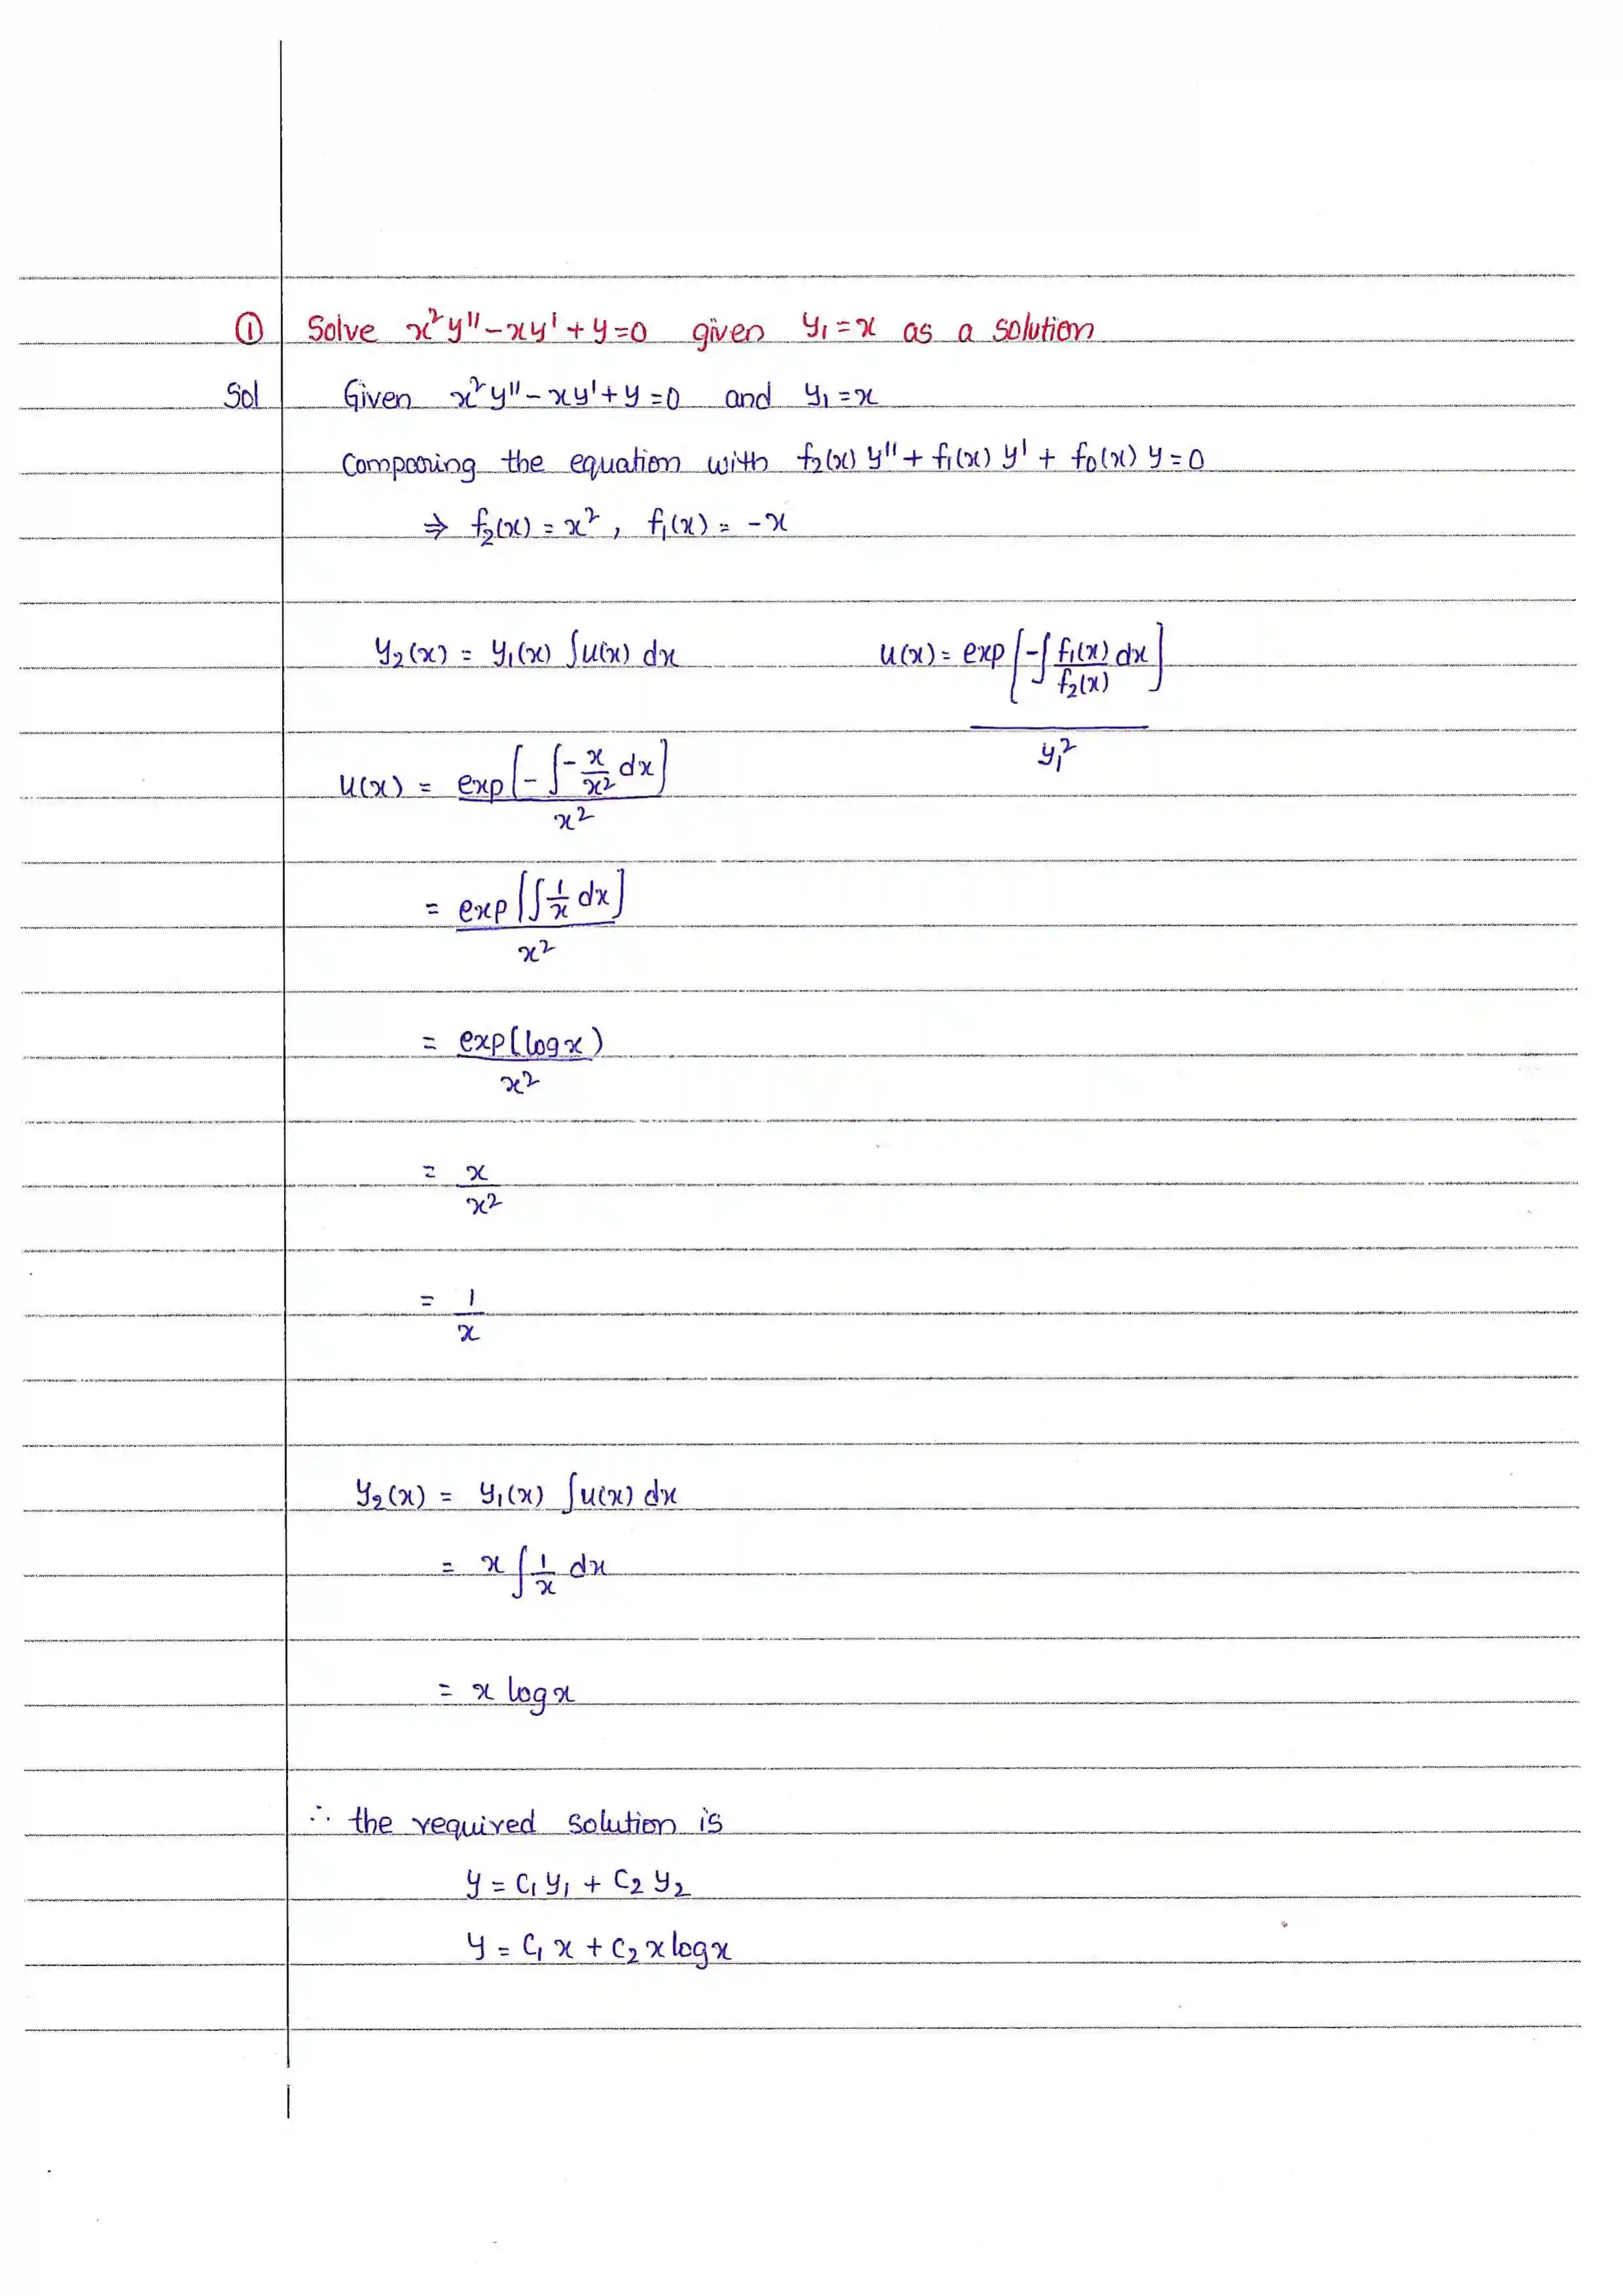 ① Solve x²y'' - xy' + y = 0 given y₁ = x as a solution
Sol Given x²y'' - xy' + y = 0 and y₁ = x
Comparing the equation with f₂(x) y'' + f₁(x) y' + f₀(x) y = 0
⇒ f₂(x) = x², f₁(x) = -x
y₂(x) = y₁(x) ∫u(x) dx u(x) = exp[-∫ f₁(x)/f₂(x) dx] / y₁²
u(x) = exp[-∫ -x/x² dx] / x²
= exp[∫ 1/x dx] / x²
= exp(log x) / x²
= x / x²
= 1 / x
y₂(x) = y₁(x) ∫u(x) dx
= x ∫ 1/x dx
= x log x
∴ the required solution is
y = c₁ y₁ + c₂ y₂
y = c₁ x + c₂ x log x